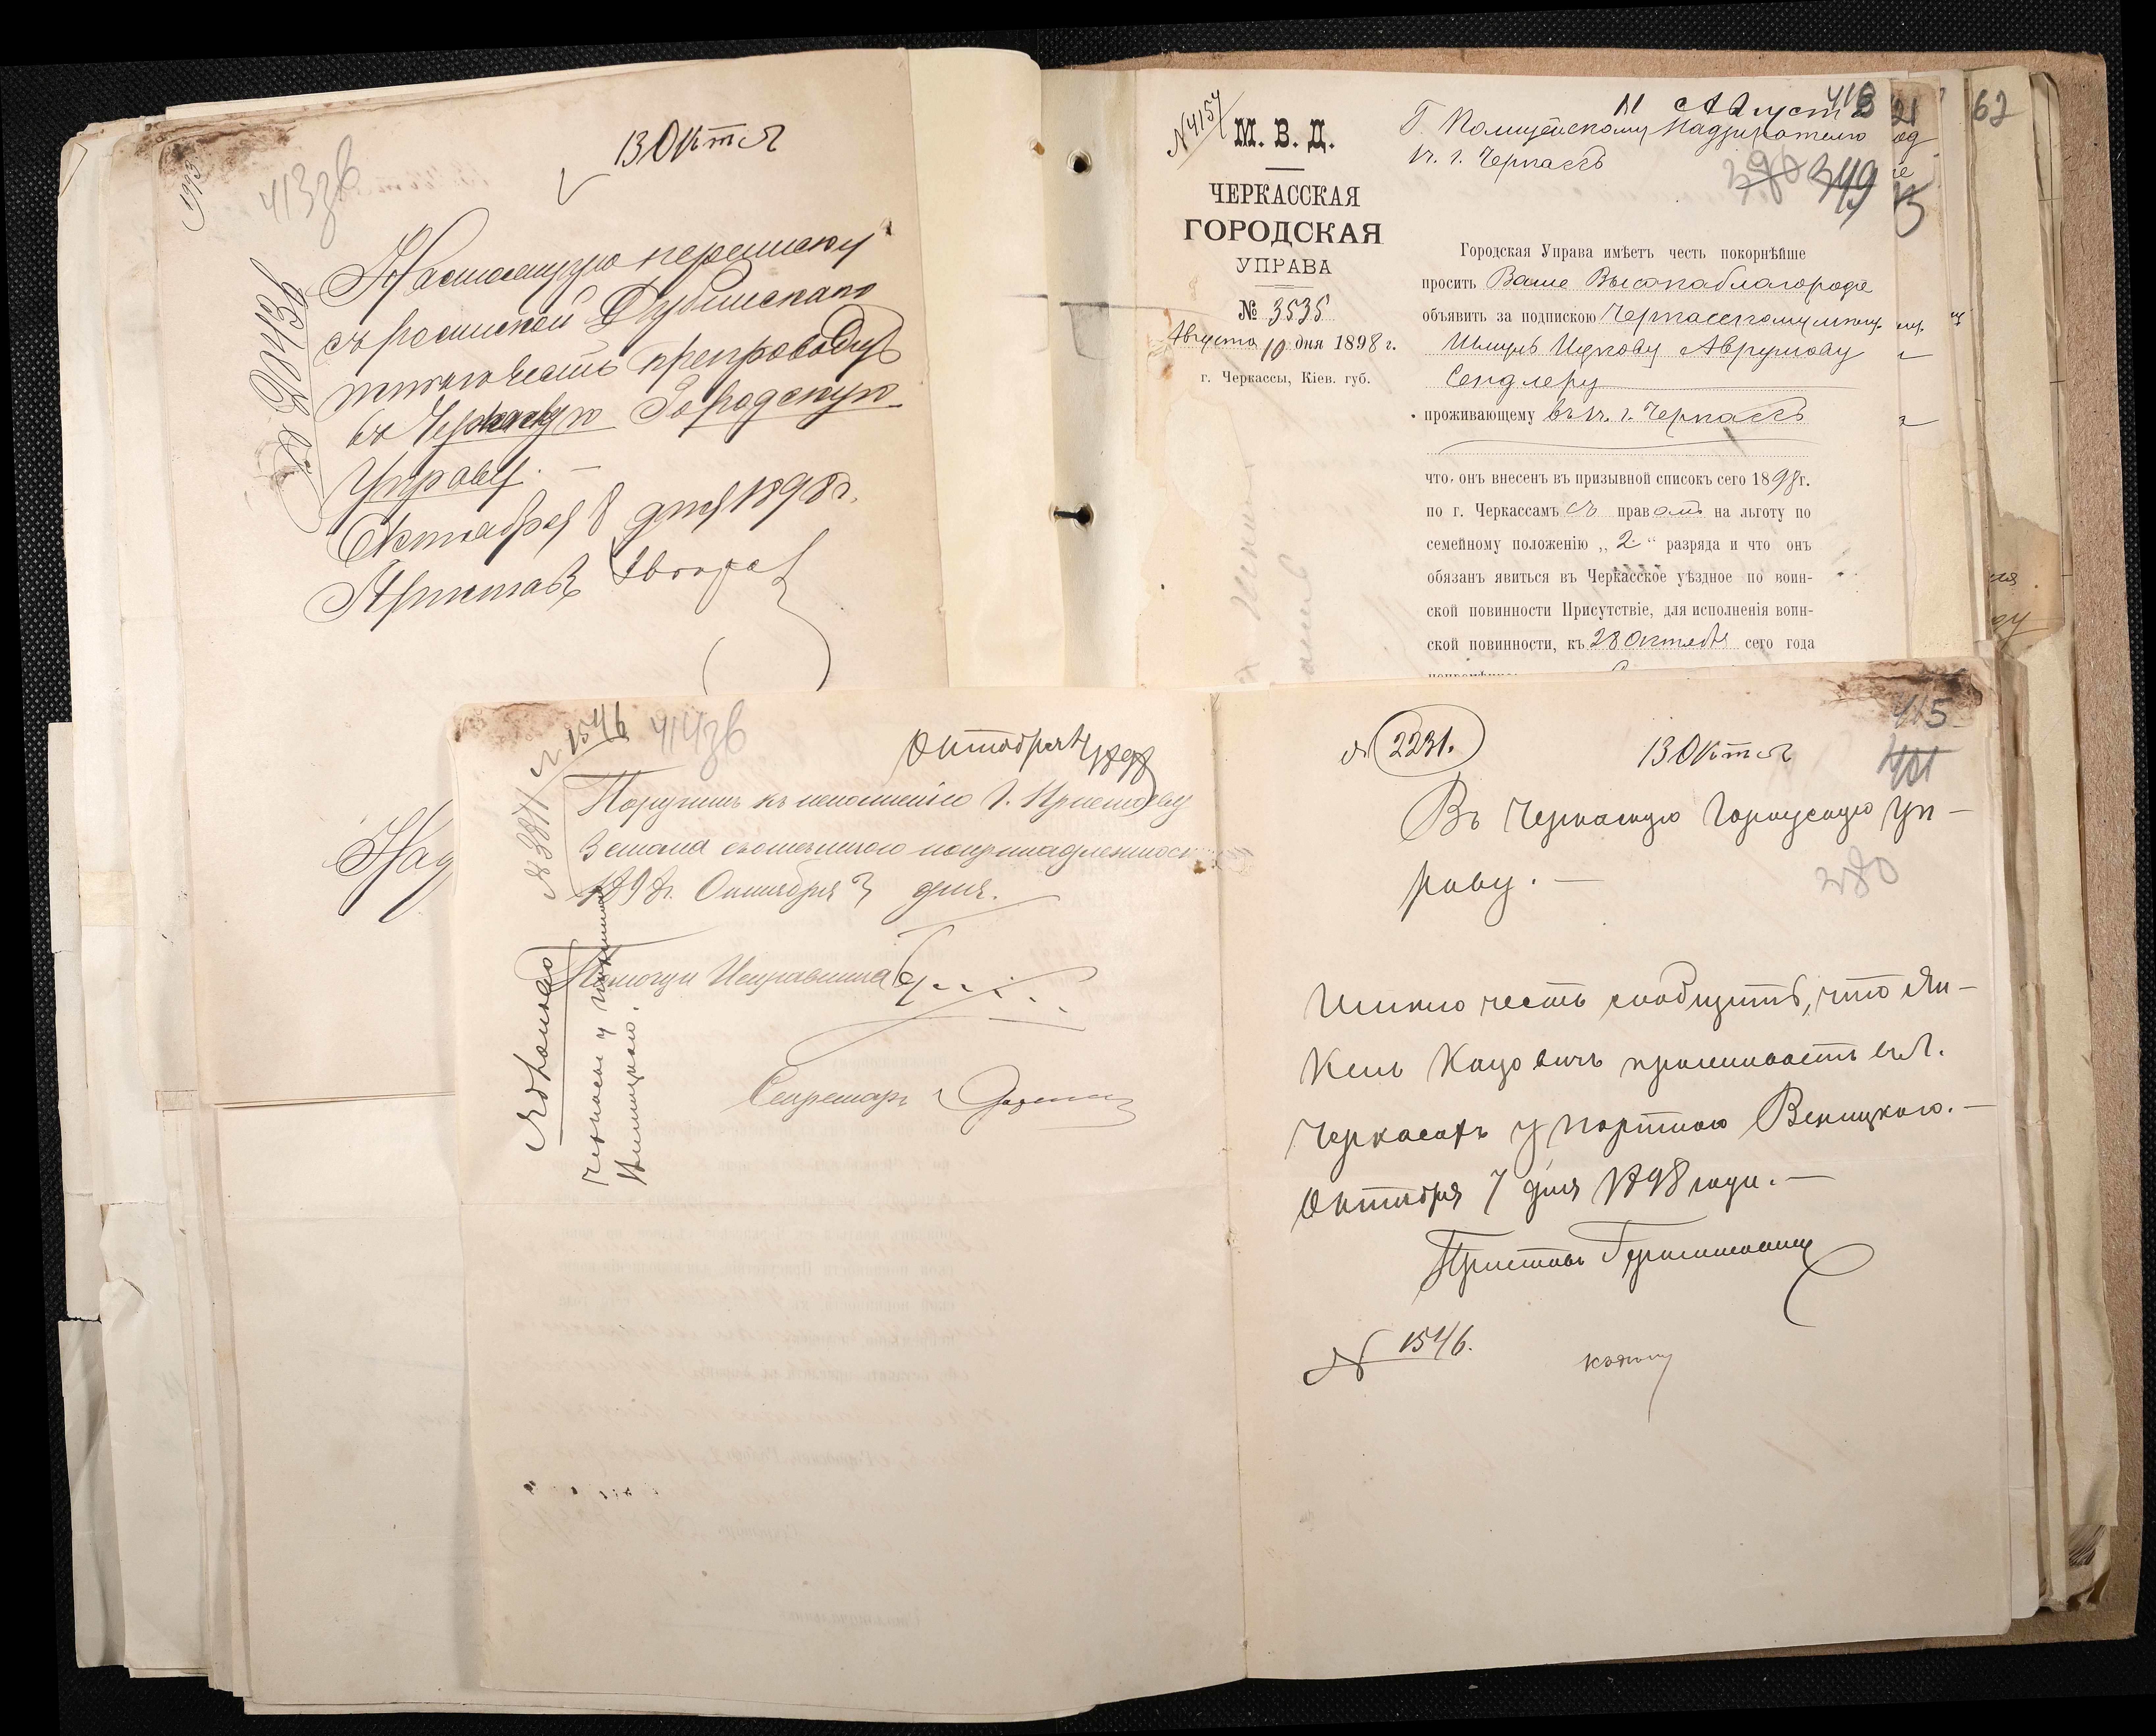 13 Октя
413зв
Настоящую переписку
съ роспиской Дубинскаго
имѣю честь препроводить
въ Черкасскую Городскую
Управу. —
Октября 8 дня 1898 г.
Приставъ
Над
№ 4154
М. В. Д.
ЧЕРКАССКАЯ
ГОРОДСКАЯ
УПРАВА
№ 3535
Августа 10 дня 1898 г.
г. Черкассы, Кіев. губ.
11 Август
416
Г. Полицейскому Надзирателю
въ г. Черкассъ
349
Городская Управа имѣетъ честь покорнѣйше
просить Ваше Высокоблагородіе
объявить за подпискою Черкасскому мѣщ.
Ицкову Аврумову
Сендлеру
проживающему въ г. Черкассъ
что, онъ внесенъ въ призывной списокъ сего 1898 г.
по г. Черкассамъ съ правомъ на льготу по
семейному положенію „2“ разряда и что онъ
обязанъ явиться въ Черкасское уѣздное по воин-
ской повинности Присутствіе, для исполненія воин-
ской повинности, къ 28 Октября сего года
62
№ 1546
414зв
Октября 4 1898
№ 3811
Поручить къ исполненію Г. Приставу
3 стана съ отсылкою по принадлежности
1898 г. Октября 3 дня.
Помощн Исправника
Секретарь
№ 2231.
13 Октя
415
401
Въ Черкаскую Городскую Уп-
раву. —
380
Имѣю честь сообщить, что Ян-
кель Кацовичъ проживаетъ въ г.
Черкасахъ у портного Веницкого. —
Октября 7 дня 1898 года. —
Приставъ
№ 1546.